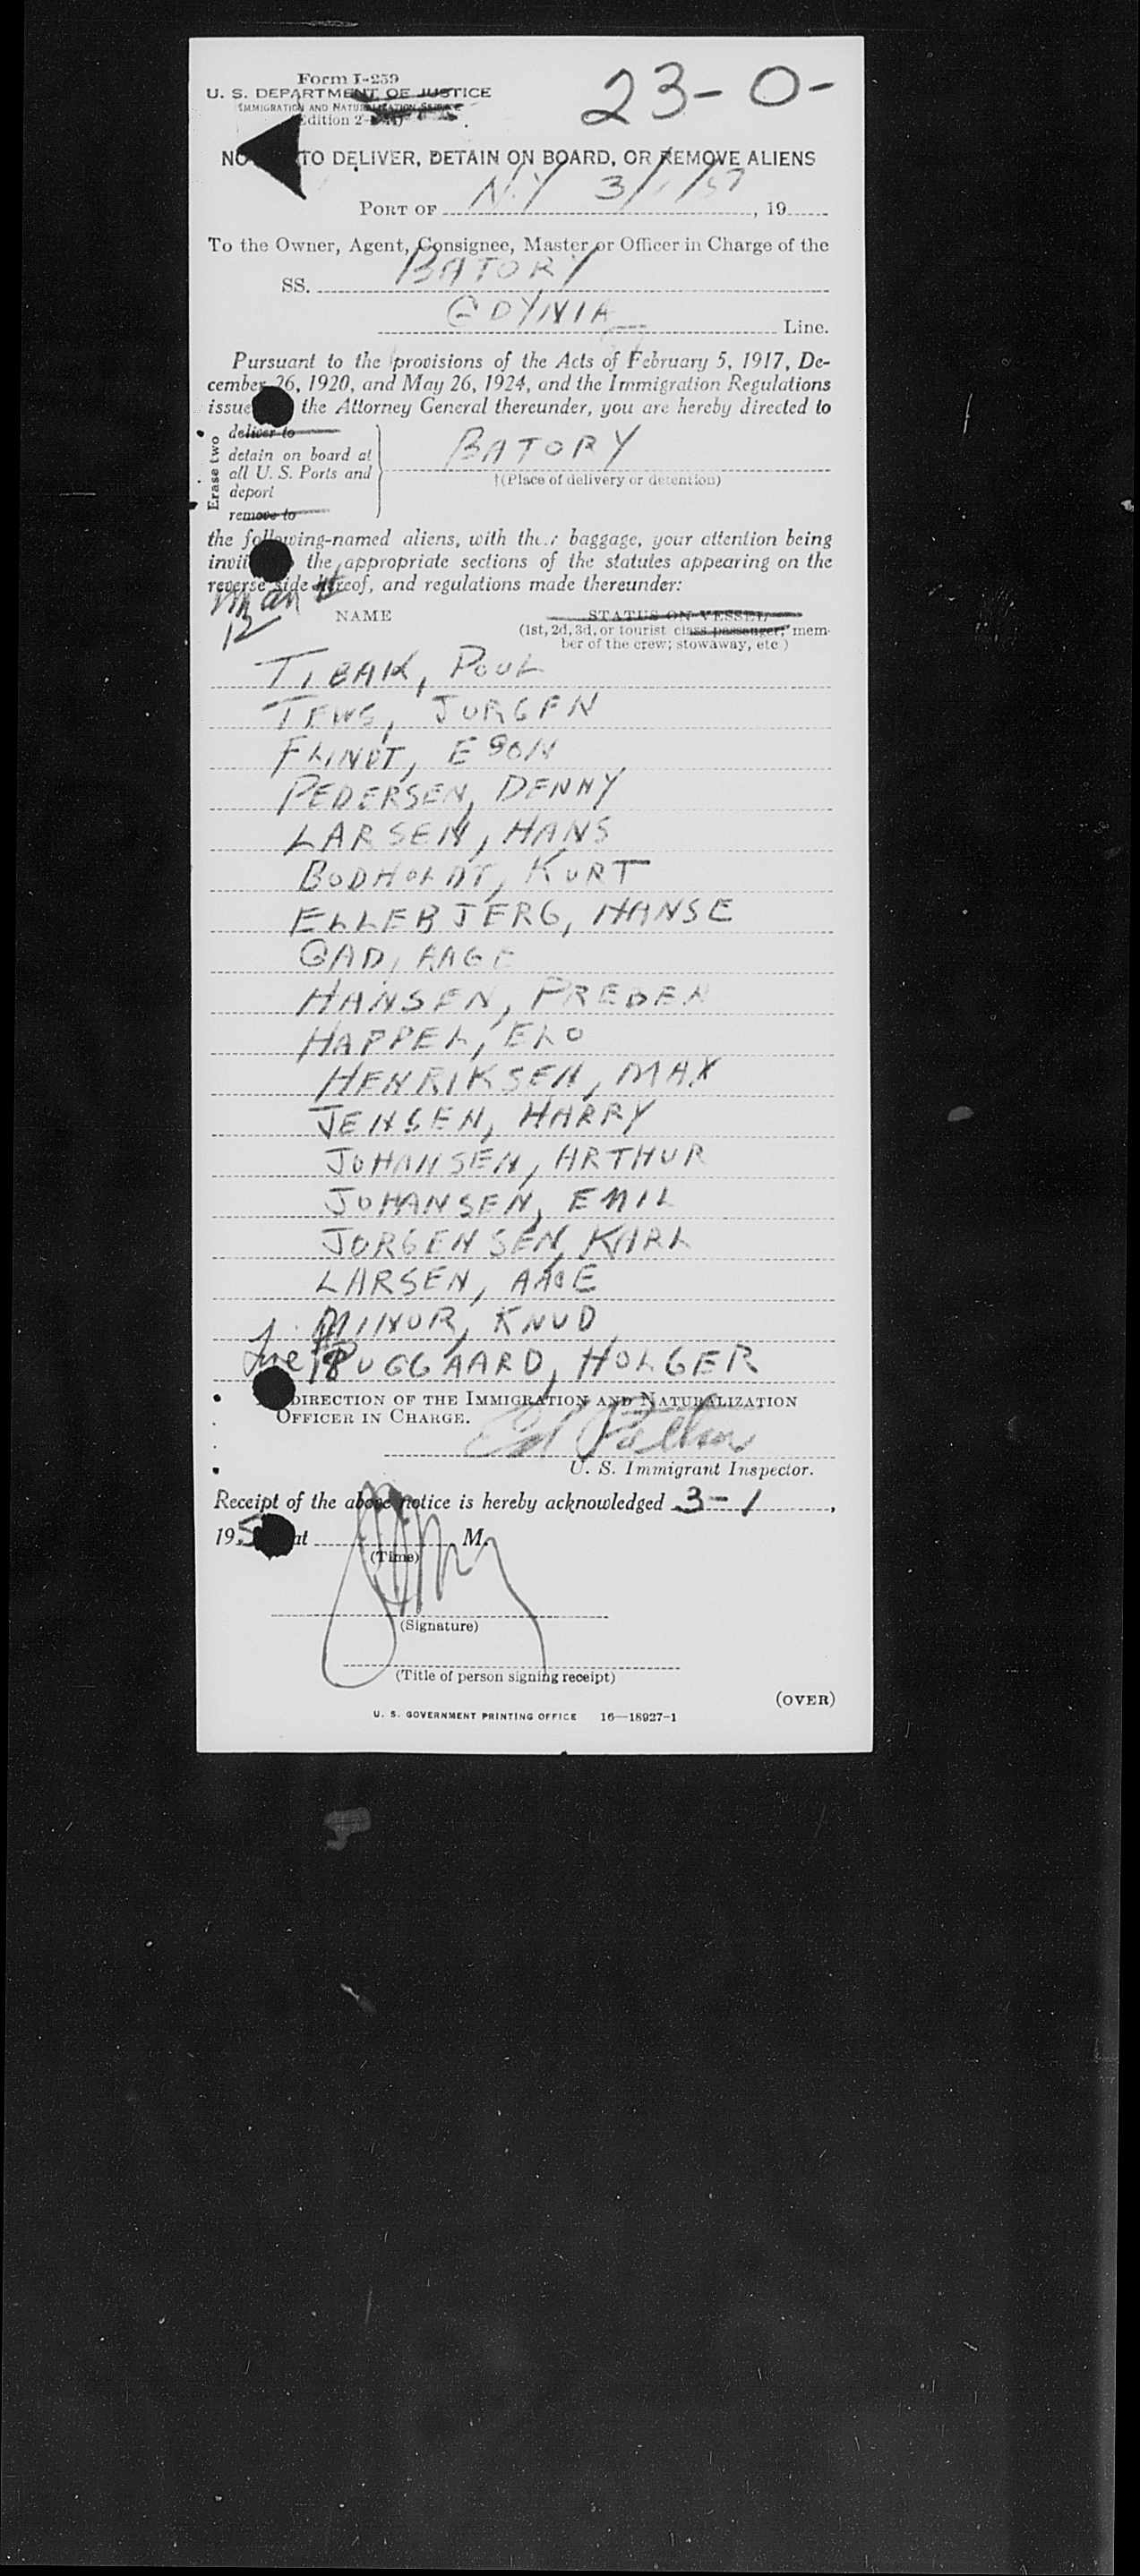 Form I-259
23-0-
U. S. DEPARTMENT OF JUSTICE
IMMIGRATION AND NATURALIZATION SERVICE
Edition 2-
NO TO DELIVER, DETAIN ON BOARD, OR REMOVE ALIENS
PORT OF N.Y 3/1/57, 19
To the Owner, Agent, Consignee, Master or Officer in Charge of the
SS. BATORY
GDYNIA Line.
Pursuant to the provisions of the Acts of February 5, 1917, De-
cember 26, 1920, and May 26, 1924, and the Immigration Regulations
issue the Attorney General thereunder, you are hereby directed to
Erase two
deliver to
detain on board at
all U. S. Ports and
deport
remove to
BATORY
†(Place of delivery or detention)
the following-named aliens, with their baggage, your attention being
invit the appropriate sections of the statutes appearing on the
reverse side hereof, and regulations made thereunder:
12
NAME
STATUS ON VESSEL
(1st, 2d, 3d, or tourist class passenger; mem-
ber of the crew; stowaway, etc.)
TIBAK, POUL
TEWS, JORGEN
FLINDT, EGON
PEDERSEN, DENNY
LARSEN, HANS
BODHOLDT, KURT
ELLEBJERG, HANSE
GAD, AAGE
HANSEN, PREBEN
HAPPEL, ELO
HENRIKSEN, MAX
JENSEN, HARRY
JOHANSEN, ARTHUR
JOHANSEN, EMIL
JORGENSEN, KARL
LARSEN, AAGE
MINOR, KNUD
PUGGAARD, HOLGER
18
DIRECTION OF THE IMMIGRATION AND NATURALIZATION
OFFICER IN CHARGE.
U. S. Immigrant Inspector.
Receipt of the above notice is hereby acknowledged 3-1,
195 at M.
(Time)
(Signature)
(Title of person signing receipt)
(OVER)
U. S. GOVERNMENT PRINTING OFFICE 16—18927-1